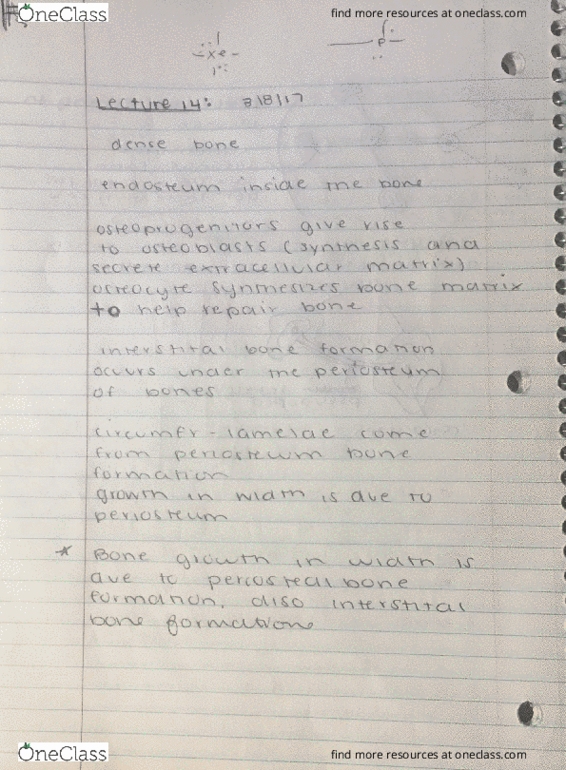 OneClass
find more resources at oneclass.com
Xe
P
Lecture 14: 3/8/17
dense bone
endosteum inside the bone
osteoprogenitors give rise
to osteoblasts (synthesis and
secrete extracellular matrix)
osteocyte synthesizes bone matrix
to help repair bone
interstital bone formation
occurs under the periosteum
of bones
circumfr-lamelae come
from periosteum bone
formation
growth in width is due to
periosteum
* Bone growth in width is
due to periosteal bone
formation, also interstital
bone formation
OneClass
find more resources at oneclass.com